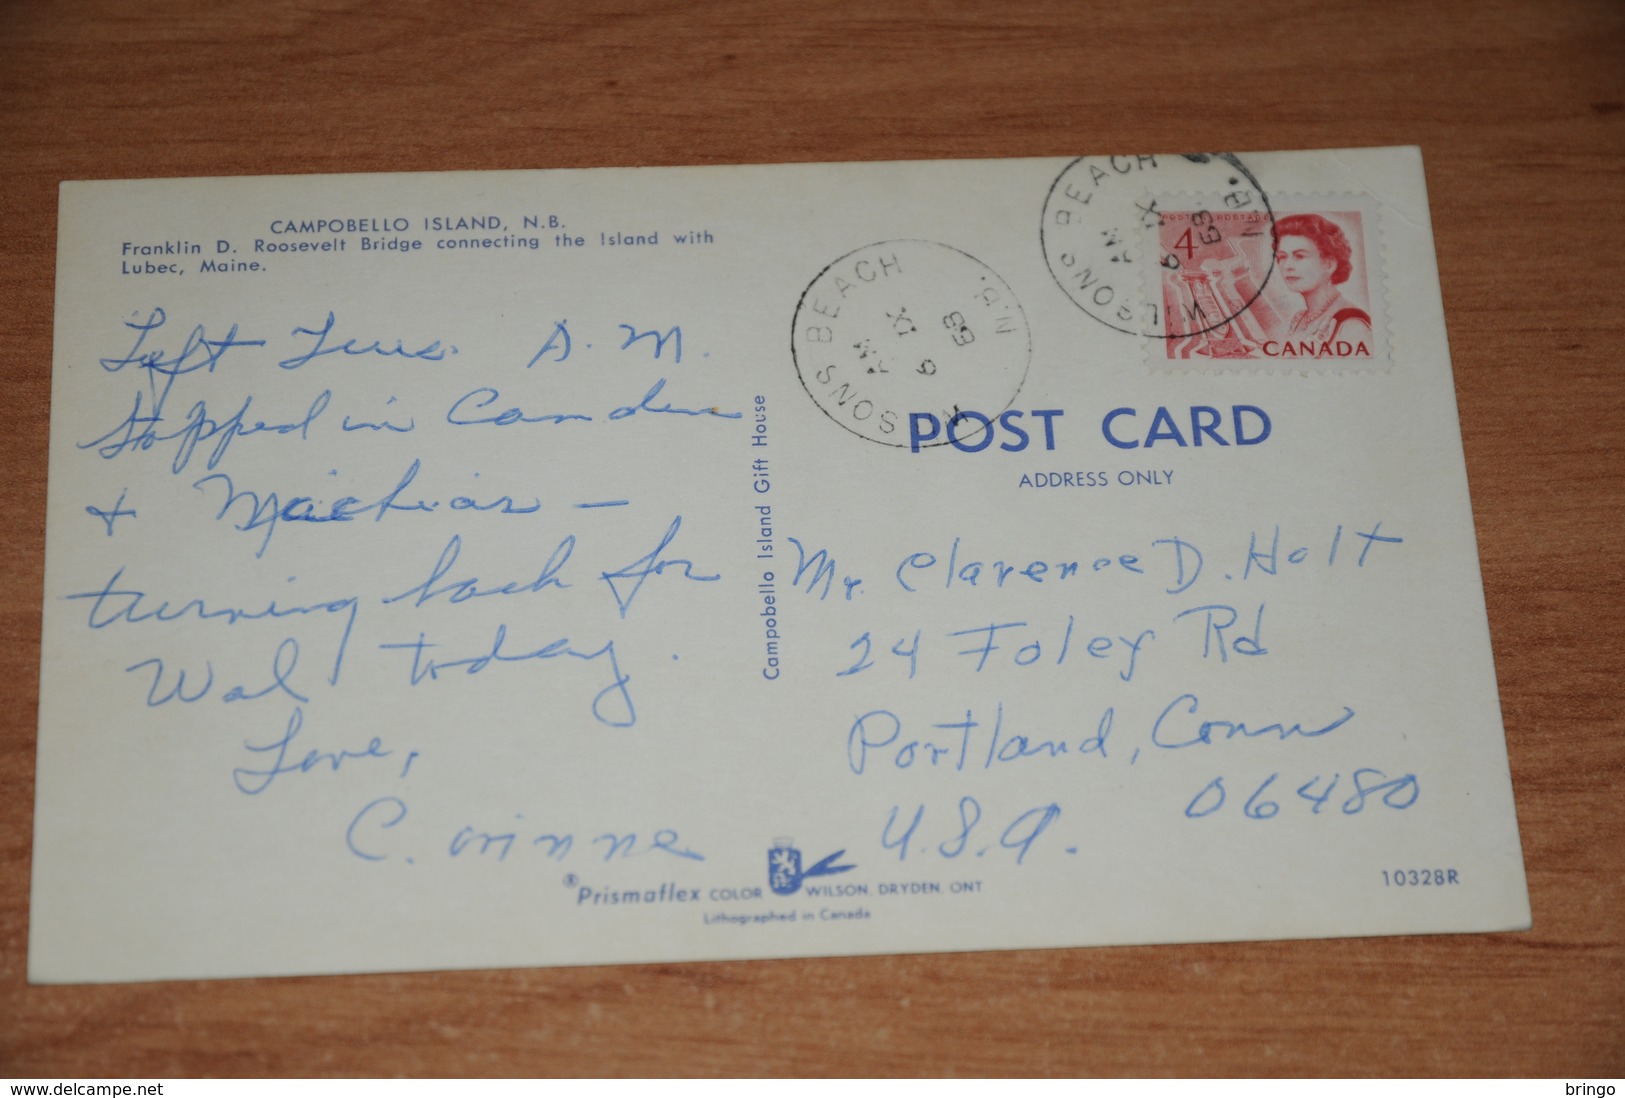 CAMPOBELLO ISLAND, N.B.
Franklin D. Roosevelt Bridge connecting the Island with
Lubec, Maine.
Left Tues. A.M.
stopped in Camden
+ Machias —
turning back for
Wal today.
Love,
Corinne
Campobello Island Gift House
WILSONS BEACH N.B.
AM
IX
9
68
WILSONS BEACH N.B.
AM
IX
9
68
POSTES POSTAGE
4
CANADA
POST CARD
ADDRESS ONLY
Mr. Clarence D. Holt
24 Foley Rd
Portland, Conn
06480
U.S.A.
®Prismaflex COLOR WILSON, DRYDEN, ONT
Lithographed in Canada
10328R
www.delcampe.net
bringo